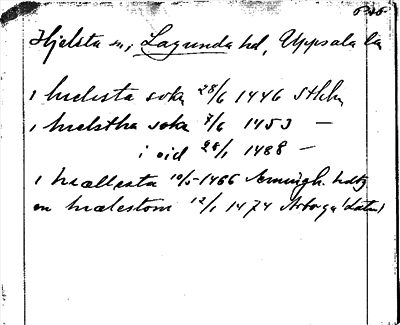 Hjelsta sn, Lagunda hd, Uppsala län
i hielista sokn 28/6 1446 Sthlm
i hielstha sokn 7/6 1453 —
i eid 28/1 1488 —
i hiællesta 10/5 1466 hdtg
en hiælestom 12/1 1474 Arboga (Latin)